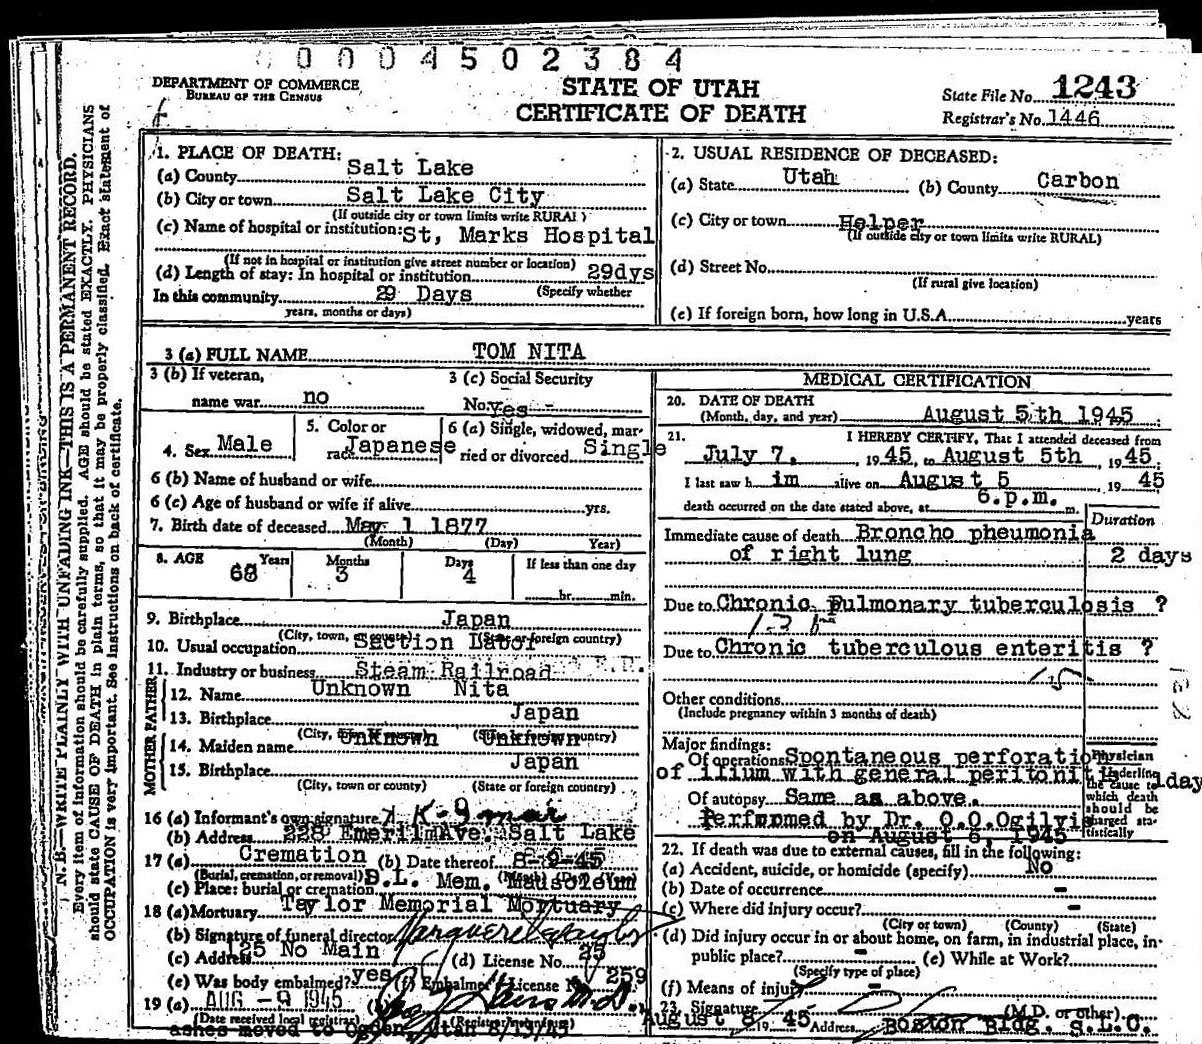 0 0 0 4 5 0 2 3 8 4
DEPARTMENT OF COMMERCE
BUREAU OF THE CENSUS
STATE OF UTAH
CERTIFICATE OF DEATH
State File No. 1243
Registrar's No. 1446
N. B.—WRITE PLAINLY WITH UNFADING INK—THIS IS A PERMANENT RECORD.
Every item of information should be carefully supplied. AGE should be stated EXACTLY. PHYSICIANS
should state CAUSE OF DEATH in plain terms, so that it may be properly classified. Exact statement of
OCCUPATION is very important. See instructions on back of certificate.
1. PLACE OF DEATH:
(a) County Salt Lake
(b) City or town Salt Lake City
(If outside city or town limits write RURAL)
(c) Name of hospital or institution: St, Marks Hospital
(If not in hospital or institution give street number or location)
(d) Length of stay: In hospital or institution 29dys
(Specify whether
In this community 29 Days
years, months or days)
2. USUAL RESIDENCE OF DECEASED:
(a) State Utah (b) County Carbon
(c) City or town Helper
(If outside city or town limits write RURAL)
(d) Street No.
(If rural give location)
(e) If foreign born, how long in U.S.A. years
3 (a) FULL NAME TOM NITA
3 (b) If veteran,
name war no
3 (c) Social Security
No. Yes -
4. Sex Male
5. Color or
race Japanese
6 (a) Single, widowed, mar-
ried or divorced Single
6 (b) Name of husband or wife
6 (c) Age of husband or wife if alive yrs.
7. Birth date of deceased May 1 1877
(Month) (Day) Year)
8. AGE 68 Years Months 3 Days 4 If less than one day
hr. min.
9. Birthplace Japan
(City, town, or county) (State or foreign country)
10. Usual occupation Section Labor
11. Industry or business Steam Railroad R.R.
FATHER
12. Name Unknown Nita
13. Birthplace Japan
(City, town or county) (State or foreign country)
MOTHER
14. Maiden name Unknown Unknown
15. Birthplace Japan
(City, town or county) (State or foreign country)
16 (a) Informant's own signature
(b) Address 228 Emeril Ave. Salt Lake
17 (a) Cremation (b) Date thereof 8-9-45
(Burial, cremation, or removal) (Month) (Day) (Year)
(c) Place: burial or cremation S.L. Mem. Mausoleum
18 (a) Mortuary Taylor Memorial Mortuary
(b) Signature of funeral director
(c) Address 125 No Main (d) License No. 25
(e) Was body embalmed? yes (f) Embalmer's License No. 259
19 (a) AUG -9 1945 (b)
(Date received local registrar) (Registrar's signature)
ashes moved to Ogden, Utah 8/13/45
MEDICAL CERTIFICATION
20. DATE OF DEATH
(Month, day, and year) August 5th 1945
21. I HEREBY CERTIFY, That I attended deceased from
July 7, 1945, to August 5th, 1945;
I last saw h im alive on August 5 1945
death occurred on the date stated above, at 6.p.m. m.
Duration
Immediate cause of death Broncho pheumonia
of right lung 2 days
Due to Chronic Pulmonary tuberculosis ?
Due to Chronic tuberculous enteritis ?
Other conditions
(Include pregnancy within 3 months of death)
Major findings:
Of operations Spontaneous perforation
of ilium with general peritonitis 1day
Of autopsy Same as above.
Performed by Dr. O.O.Ogilvie
on August 6, 1945
Physician
Underline
the cause to
which death
should be
charged sta-
tistically
22. If death was due to external causes, fill in the following:
(a) Accident, suicide, or homicide (specify) NO
(b) Date of occurrence -
(c) Where did injury occur? -
(City or town) (County) (State)
(d) Did injury occur in or about home, on farm, in industrial place, in
public place? - (e) While at Work?
(Specify type of place)
(f) Means of injury -
23. Signature (M.D. or other)
August 8 1945 Address Boston Bldg. S.L.C.